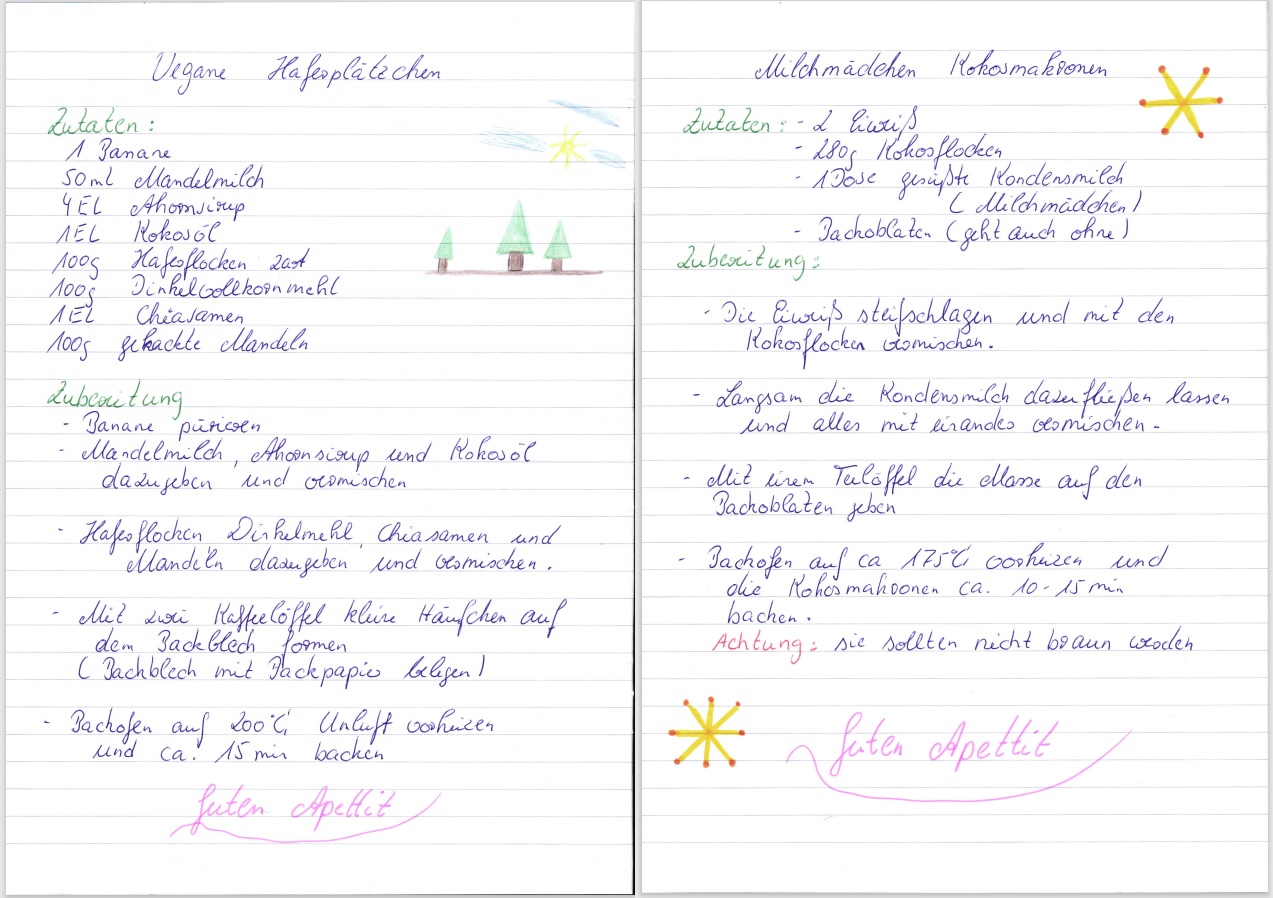 Vegane Haferplätzchen
Zutaten:
1 Banane
50ml Mandelmilch
4EL Ahornsirup
1EL Kokosöl
100g Haferflocken zart
100g Dinkelvollkornmehl
1EL Chiasamen
100g gehackte Mandeln
Zubereitung
- Banane pürieren
- Mandelmilch, Ahornsirup und Kokosöl
dazugeben und vermischen
- Haferflocken Dinkelmehl, Chiasamen und
Mandeln dazugeben und vermischen.
- Mit zwei Kaffeelöffel kleine Häufchen auf
dem Backblech formen
(Backblech mit Backpapier belegen)
- Backofen auf 200°C, Umluft vorheizen
und ca. 15 min backen
Guten Apettit
Milchmädchen Kokosmakronen
Zutaten: - 2 Eiweiß
- 280g Kokosflocken
- 1 Dose gesüßte Kondensmilch
(Milchmädchen)
- Backoblaten (geht auch ohne)
Zubereitung:
- Die Eiweiß steifschlagen und mit den
Kokosflocken vermischen.
- Langsam die Kondensmilch dazu fließen lassen
und alles mit einander vermischen.
- Mit einem Teelöffel die Masse auf den
Backoblaten geben
- Backofen auf ca 175°C vorheizen und
die Kokosmakronen ca. 10-15 min
backen.
Achtung: sie sollten nicht braun werden
Guten Apettit